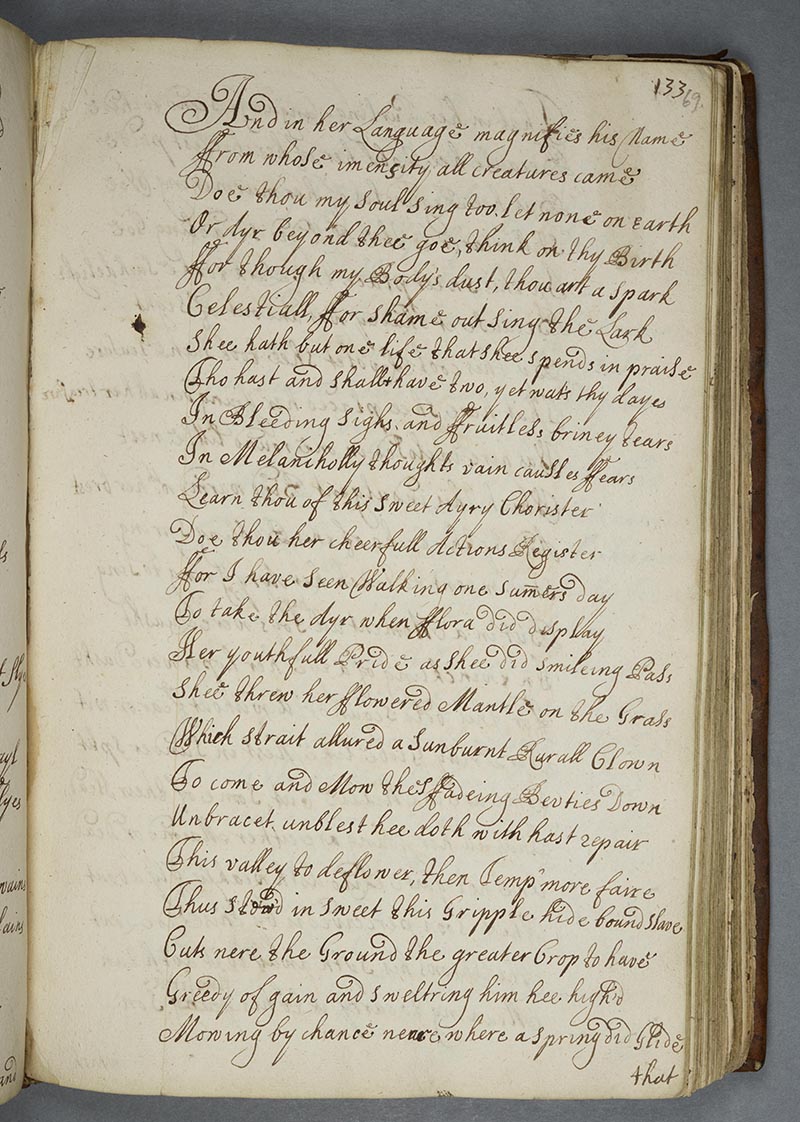 133
69.
And in her Language magnifies his Name
ffrom whose imensity all creatures came
Doe thou my soul sing too, let none on Earth
Or Ayr beyond thee goe, think on thy Birth
ffor though my Body's dust, thou art a spark
Celestiall, ffor shame out sing the Lark
Shee hath but one life that shee spends in praise
Tho hast and shallt have two, yet wats thy dayes
In Bleeding sighs and ffruitless briney tears
In Melancholly thoughts vain causles ffears
Learn thou of this sweet Ayry Chorister
Doe thou her cheerfull Actions Register
ffor I have seen Walking one sumers day
To take the Ayr when fflora did display
Her youthfull Pride as shee did smileing Pass
Shee threw her fflowered Mantle on the Grass
Which strait allured a sunburnt Rurall Clown
To come and Mow thes ffadeing Bevties Down
Unbracet unblest hee doth with hast repair
This valley to deflower, then Temp' more faire
Thus in sweet this Gripple hide bound slave
Cuts nere the Ground the greater Crop to have
Greedy of gain and sweltring him hee high'd
Mowing by chance neare where a spring did Glide
that